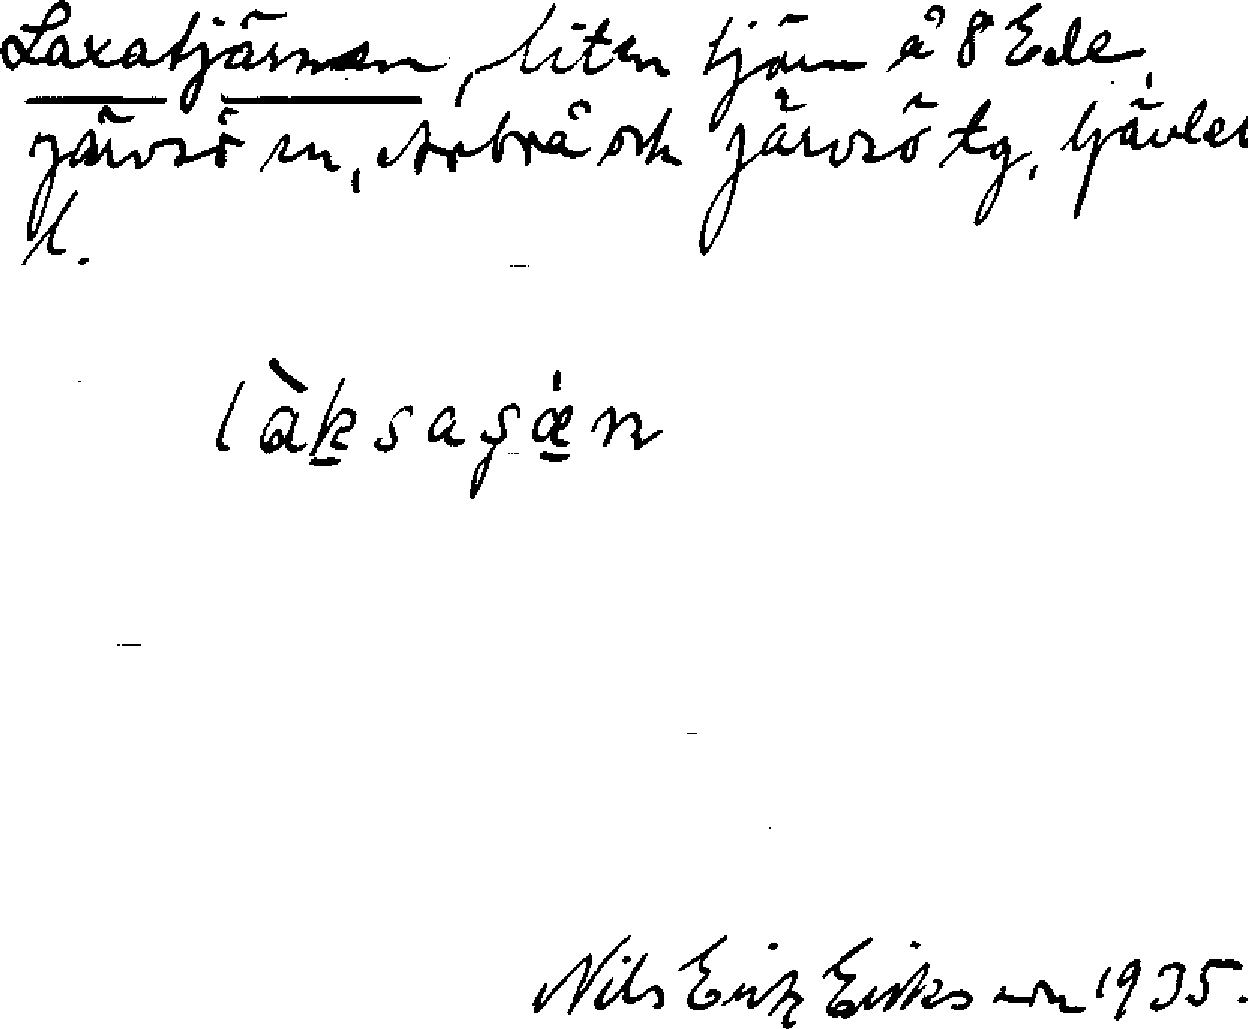 Laxatjärnen, liten tjärn å 8 Ede,
Järvsö sn, Arbrå och Järvsö tg, Gävleb
l.
làksaşǽn
Nils Erik Eriksson 1935.